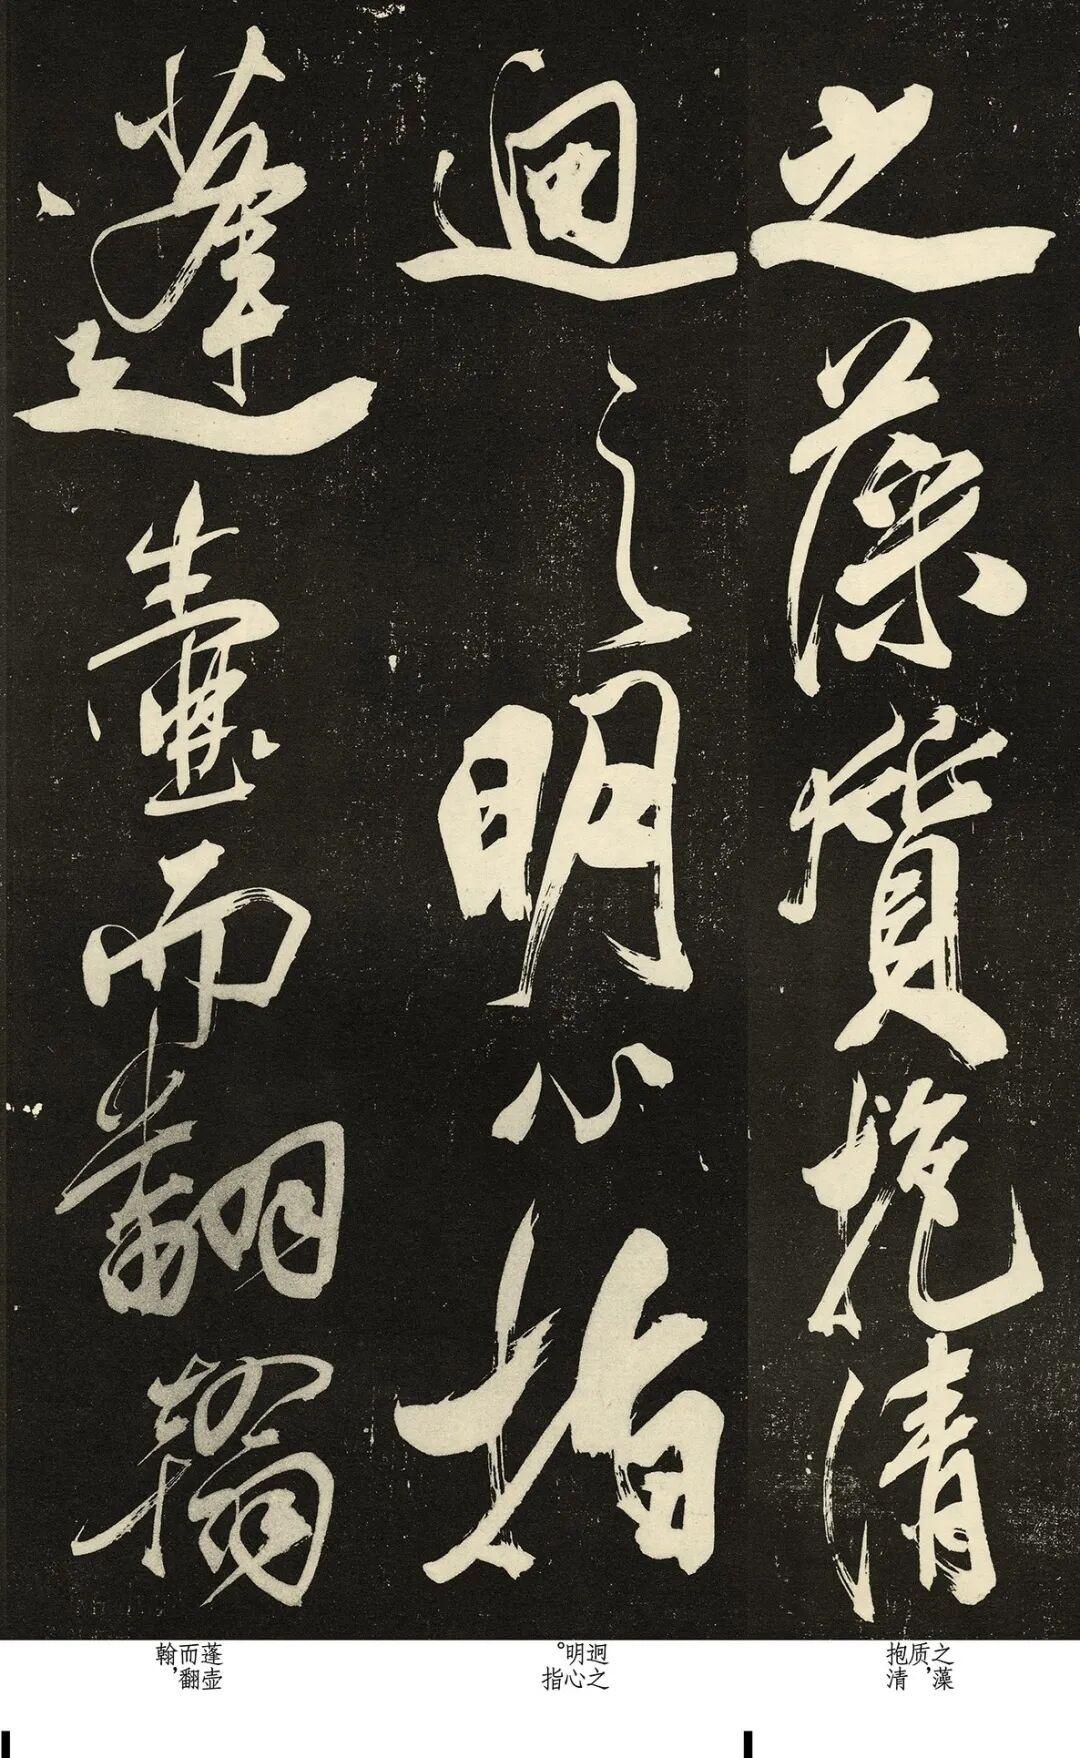 之藻質抱清
迥之明心指
蓬壺而翻翰
之藻质，抱清
迥之明心。指
蓬壶而翻翰，